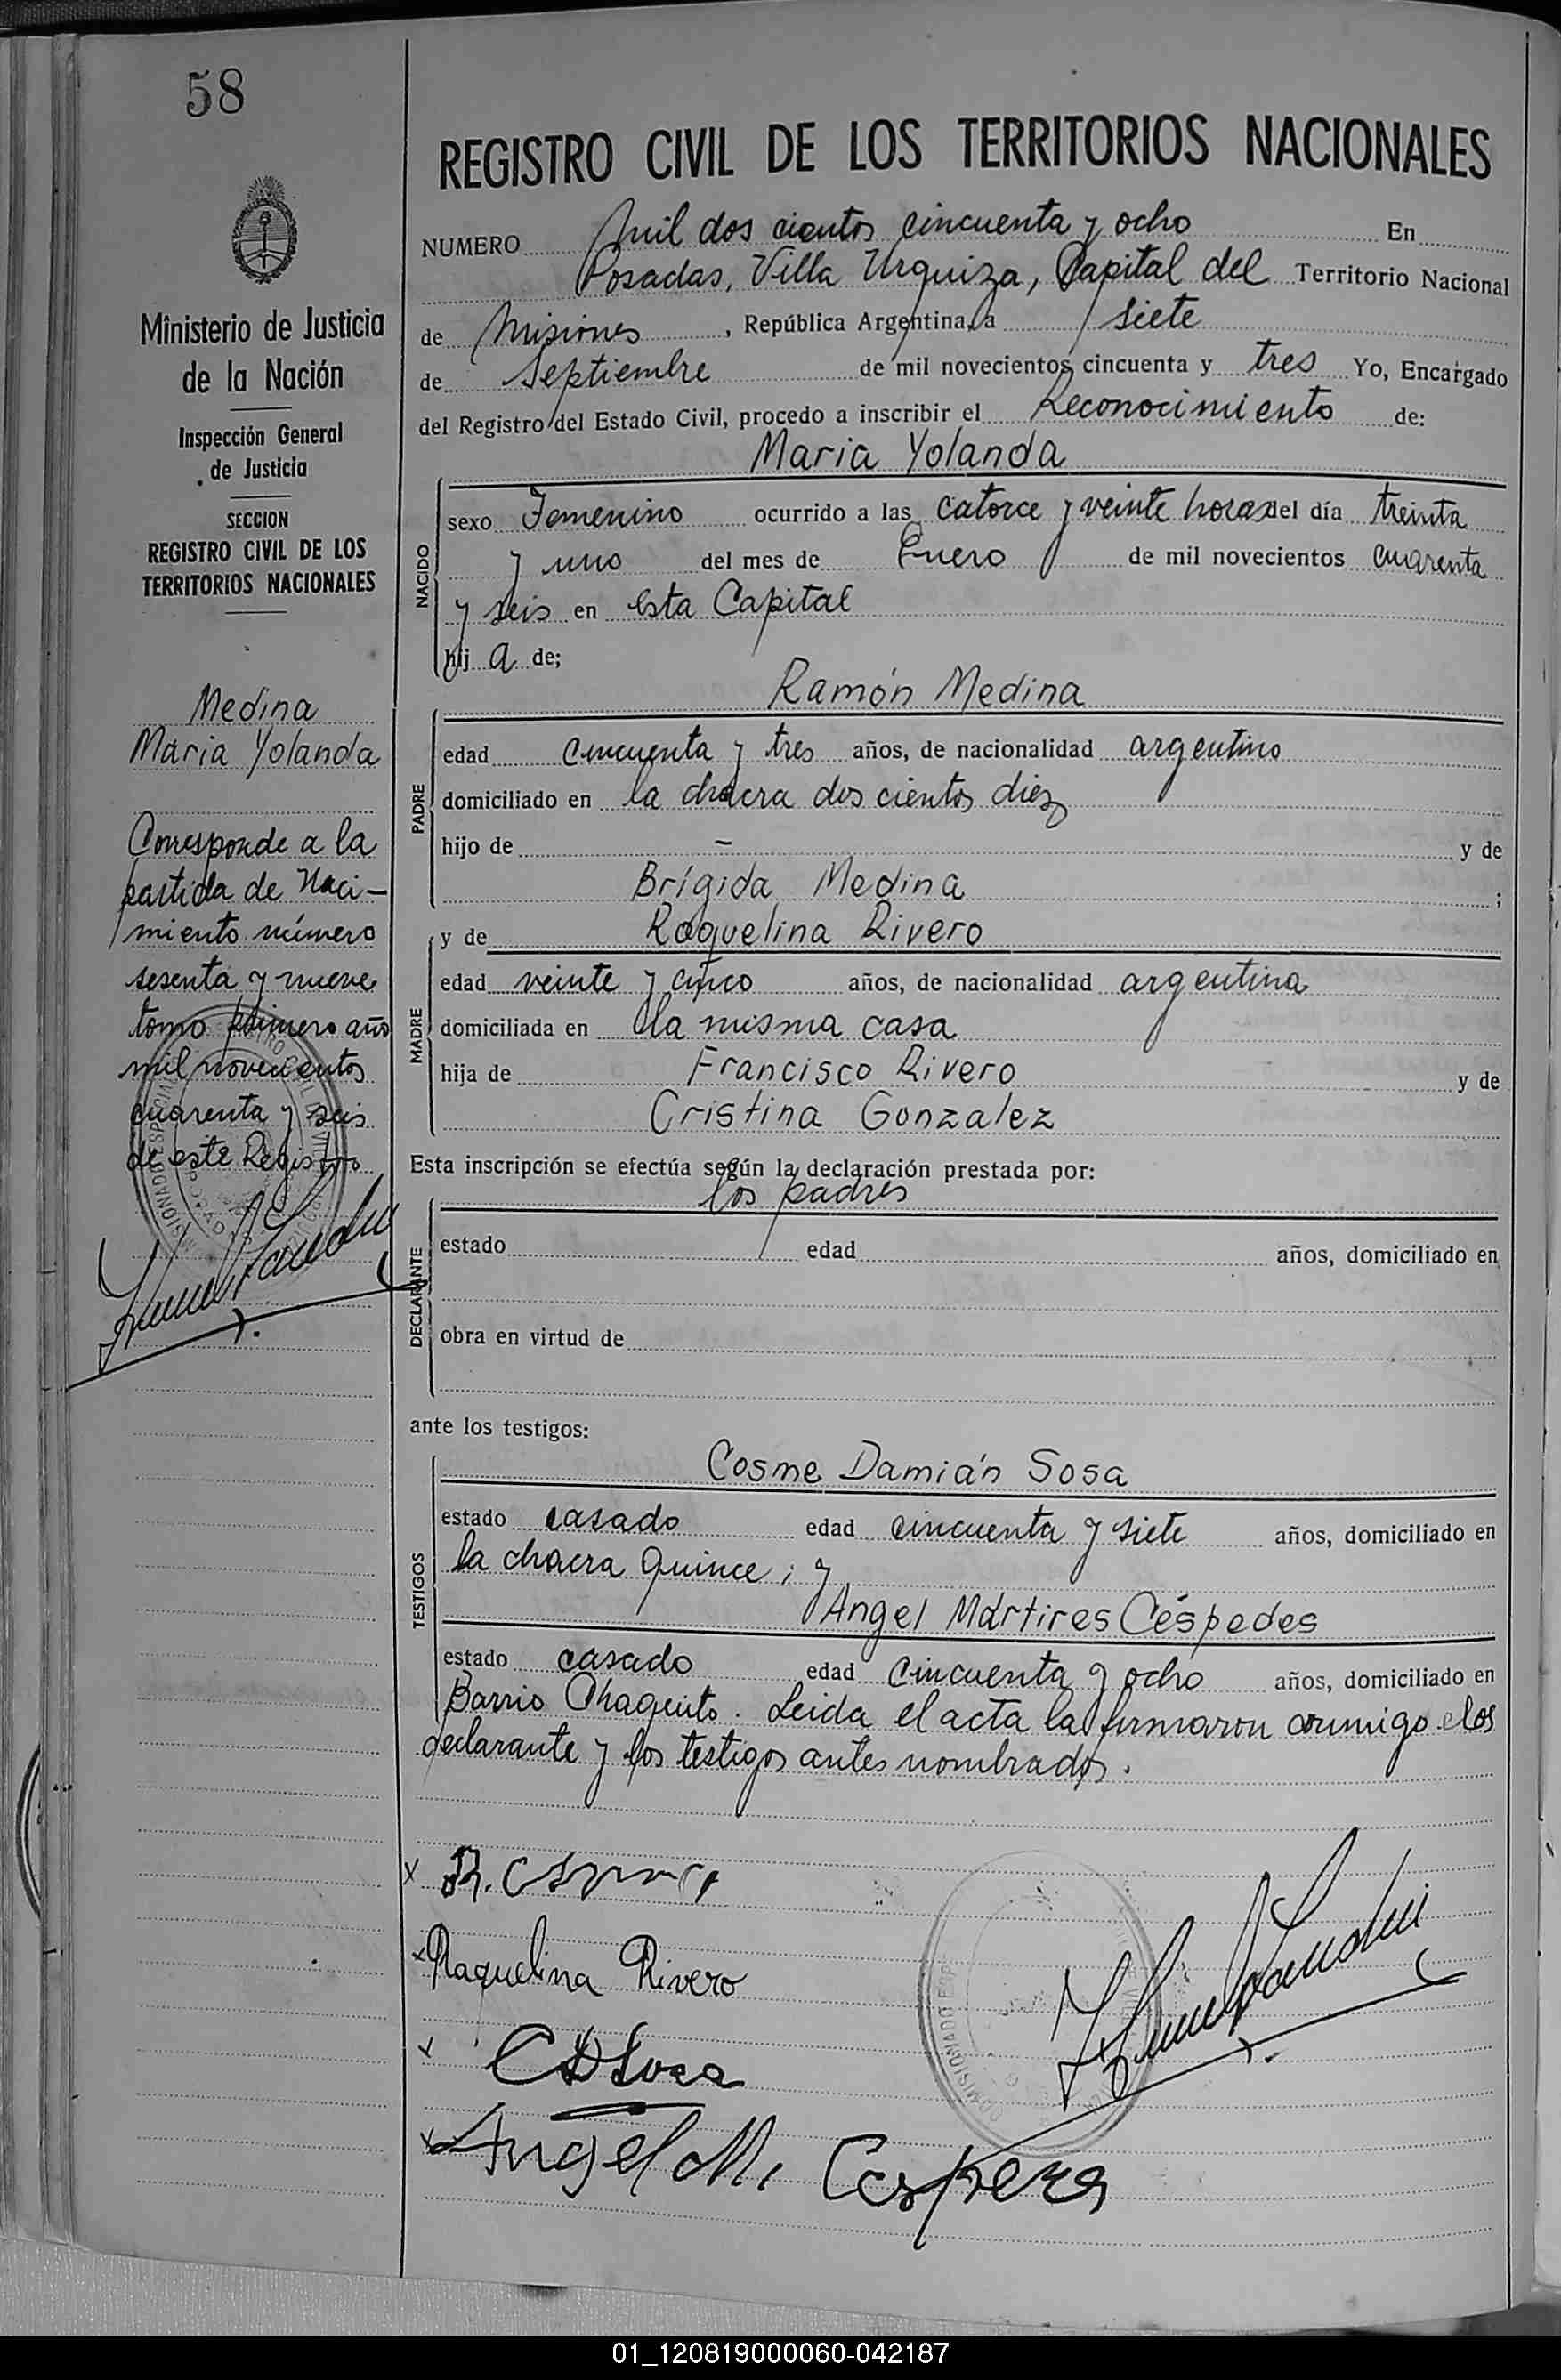 58
Ministerio de Justicia
de la Nación
Inspección General
de Justicia
SECCION
REGISTRO CIVIL DE LOS
TERRITORIOS NACIONALES
Medina
Maria Yolanda
Corresponde a la
partida de Naci-
miento número
sesenta y nueve
tomo primero año
mil novecientos
cuarenta y seis
de este Registro
REGISTRO CIVIL DE LOS TERRITORIOS NACIONALES
NUMERO mil dos cientos cincuenta y ocho En
Posadas, Villa Urquiza, Capital del Territorio Nacional
de Misiones, República Argentina, a siete
de Septiembre de mil novecientos cincuenta y tres Yo, Encargado
del Registro del Estado Civil, procedo a inscribir el Reconocimiento de:
Maria Yolanda
NACIDO
sexo Femenino ocurrido a las catorce y veinte horas del día treinta
y uno del mes de Enero de mil novecientos cuarenta
y seis en esta Capital
hij a de;
Ramón Medina
PADRE
edad cincuenta y tres años, de nacionalidad argentino
domiciliado en la chacra dos cientos diez
hijo de — y de
Brígida Medina ;
y de Raquelina Rivero
MADRE
edad veinte y cinco años, de nacionalidad argentina
domiciliada en la misma casa
hija de Francisco Rivero y de
Cristina Gonzalez
Esta inscripción se efectúa según la declaración prestada por:
los padres
DECLARANTE
estado edad años, domiciliado en
obra en virtud de
ante los testigos:
Cosme Damián Sosa
TESTIGOS
estado casado edad cincuenta y siete años, domiciliado en
la chacra quince; y
Angel Mártires Céspedes
estado casado edad cincuenta y ocho años, domiciliado en
Barrio Chaquito. Leida el acta la firmaron conmigo el os
declarante y los testigos antes nombrados.
x R.
x Raquelina Rivero
x CDSosa
x Angel M.
01_120819000060-042187